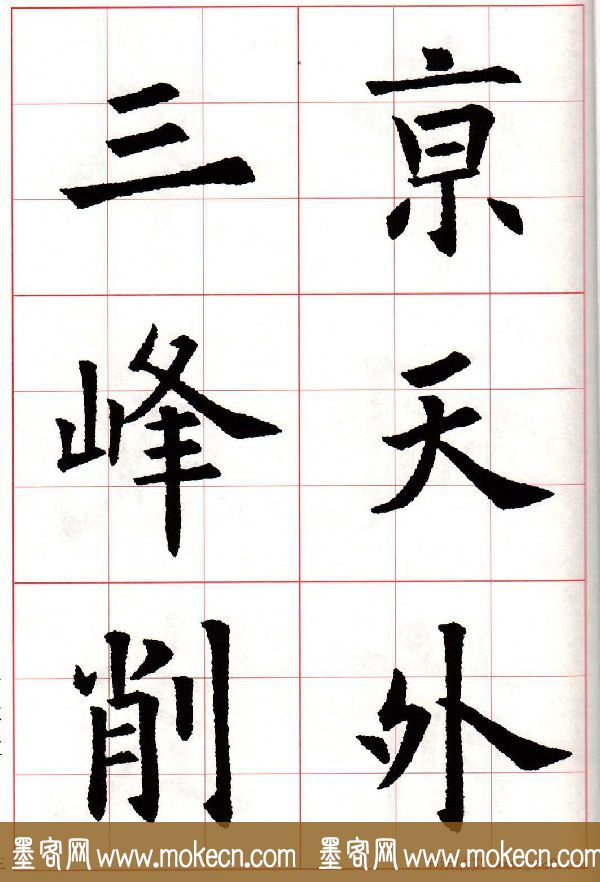 亰天外
三峰削
墨客网 www.mokecn.com 墨客网 www.mokecn.com